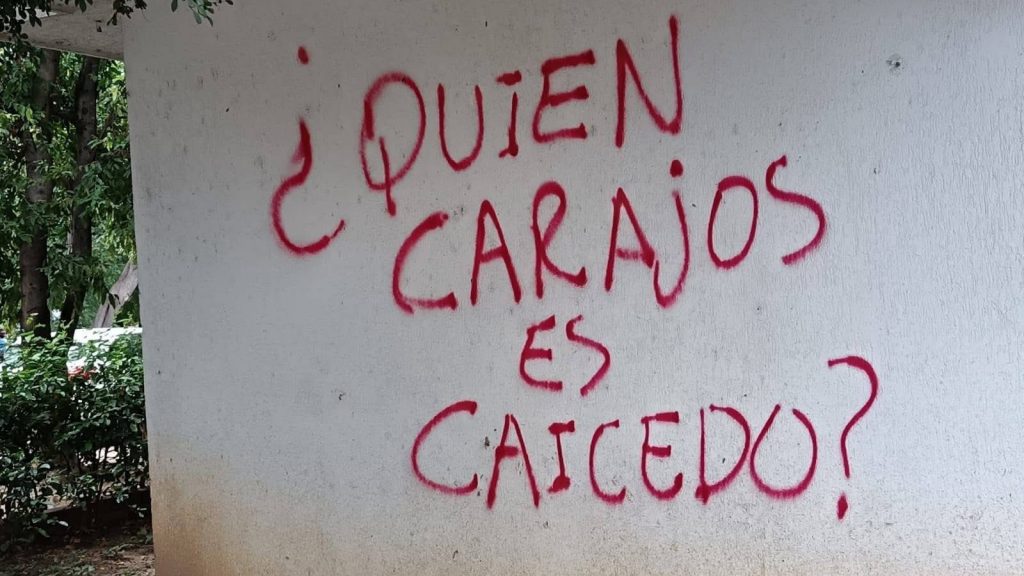 ¿QUIEN
CARAJOS
ES
CAICEDO?